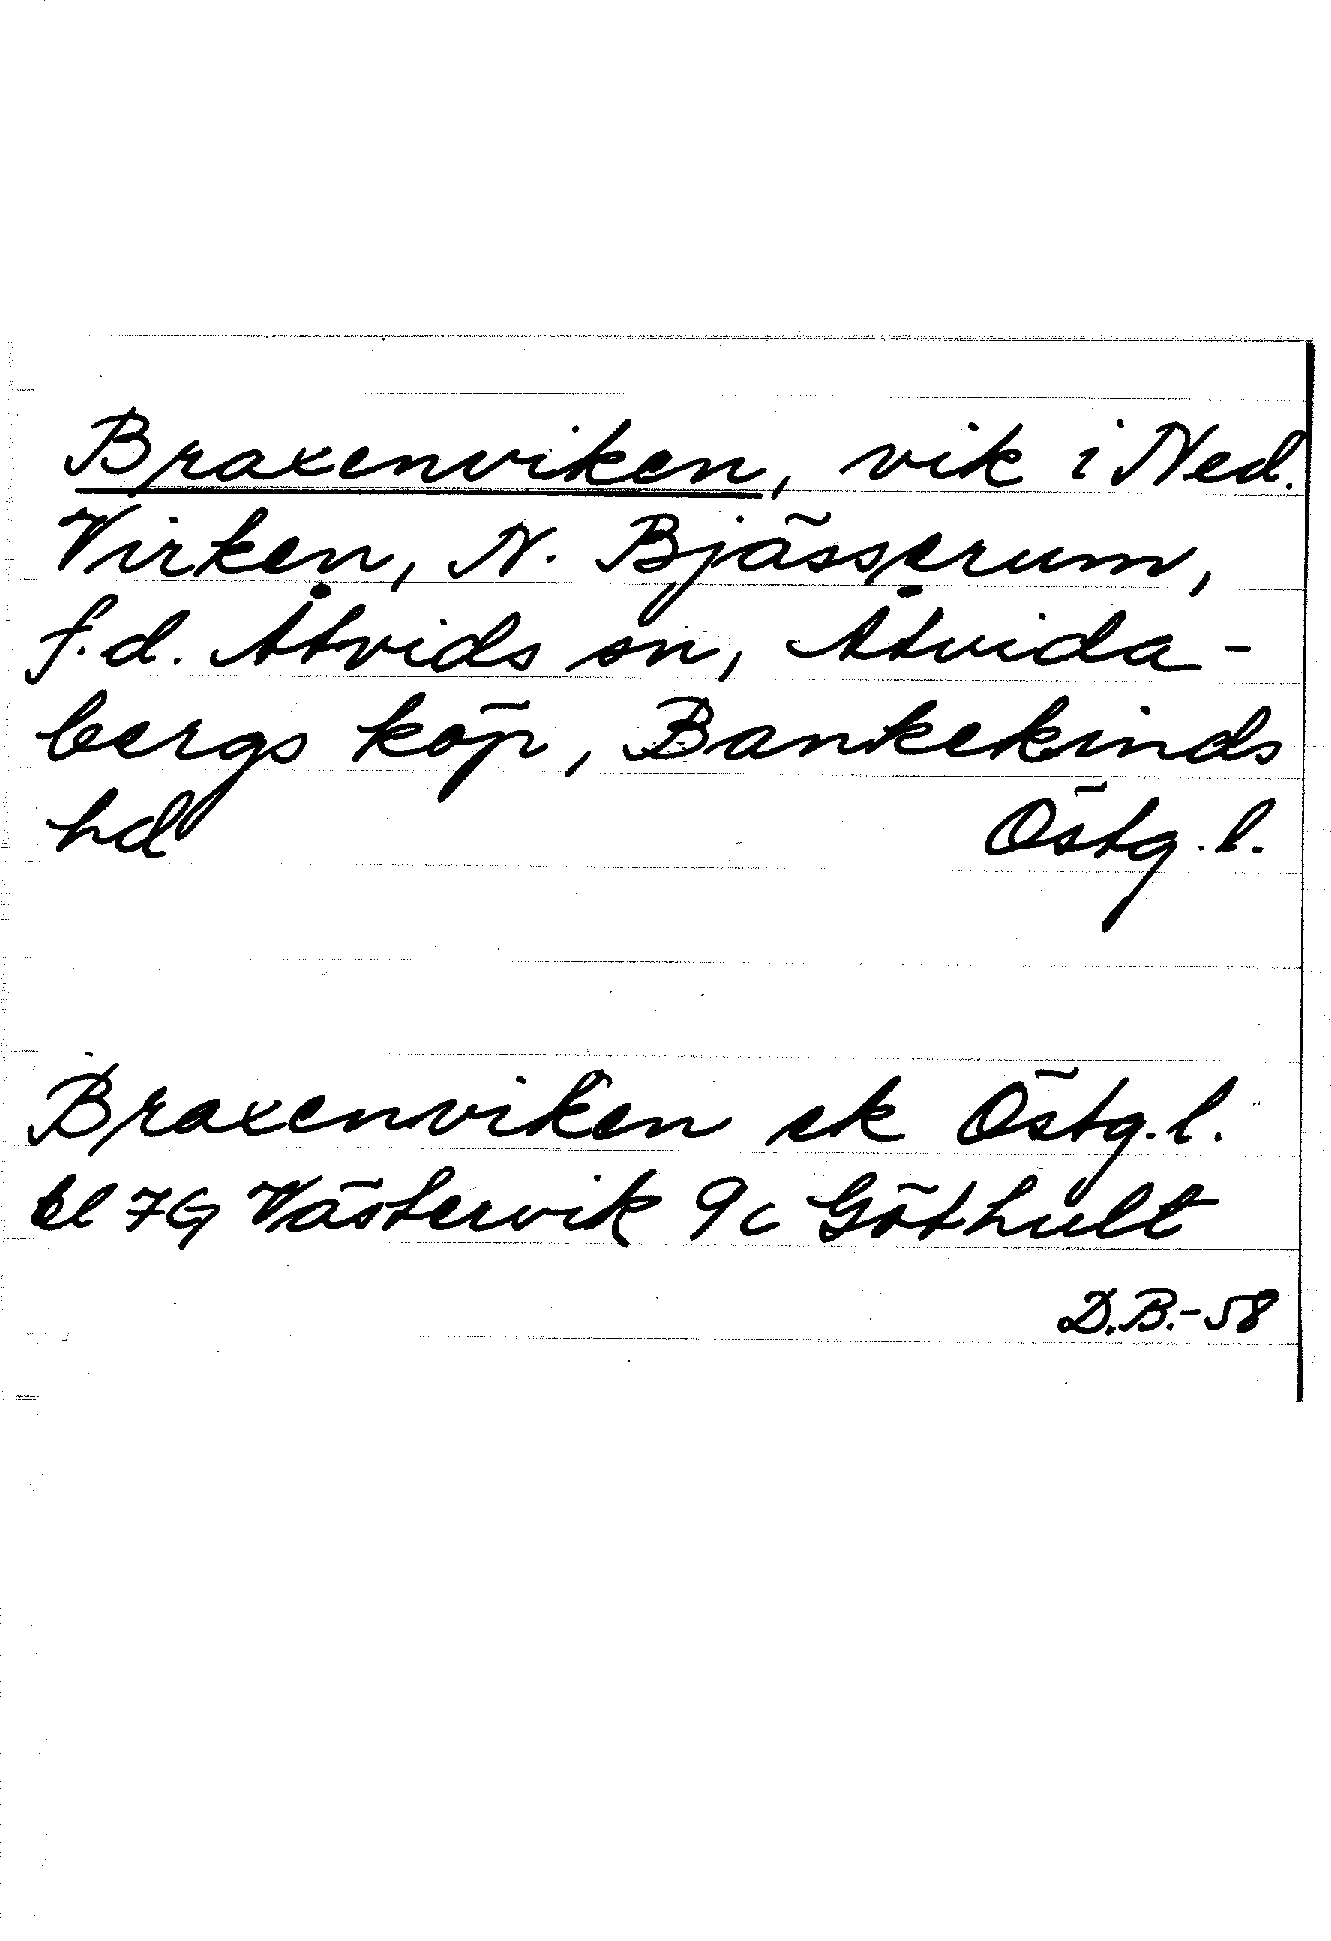 Braxenviken, vik i Ned.
Virken, N. Bjässerum,
f.d. Åtvids sn, Åtvida-
bergs köp, Bankekinds
hd Östg. l.
Braxenviken ek Östg. l.
bl 7G Västervik 9c Göthult
D.B.-58